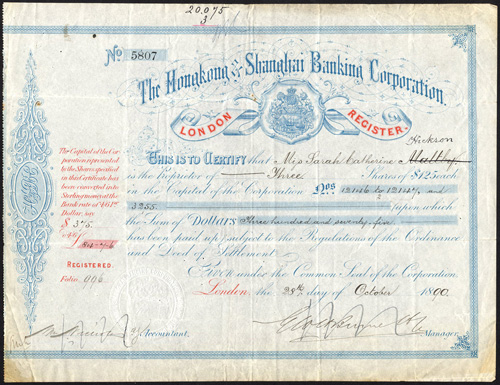 20.075
3
No 5807
The Hongkong and Shanghai Banking Corporation.
LONDON REGISTER.
Hickson
This is to Certify that Miss Sarah Catherine
is the Proprietor of Three Shares of $125 each
in the Capital of the Corporation Nos and
3255 upon which
the Sum of Dollars Three hundred and seventy five
has been paid up subject to the Regulations of the Ordinance
and Deed of Settlement.
Given under the Common Seal of the Corporation.
London, the 28th day of October 1890.
Accountant.
Manager.
The Capital of the Corporation represented
by the Shares specified
in this Certificate has
been converted into
Sterling money at the
Bank rate of
Dollar, say
$ 375
REGISTERED.
Folio